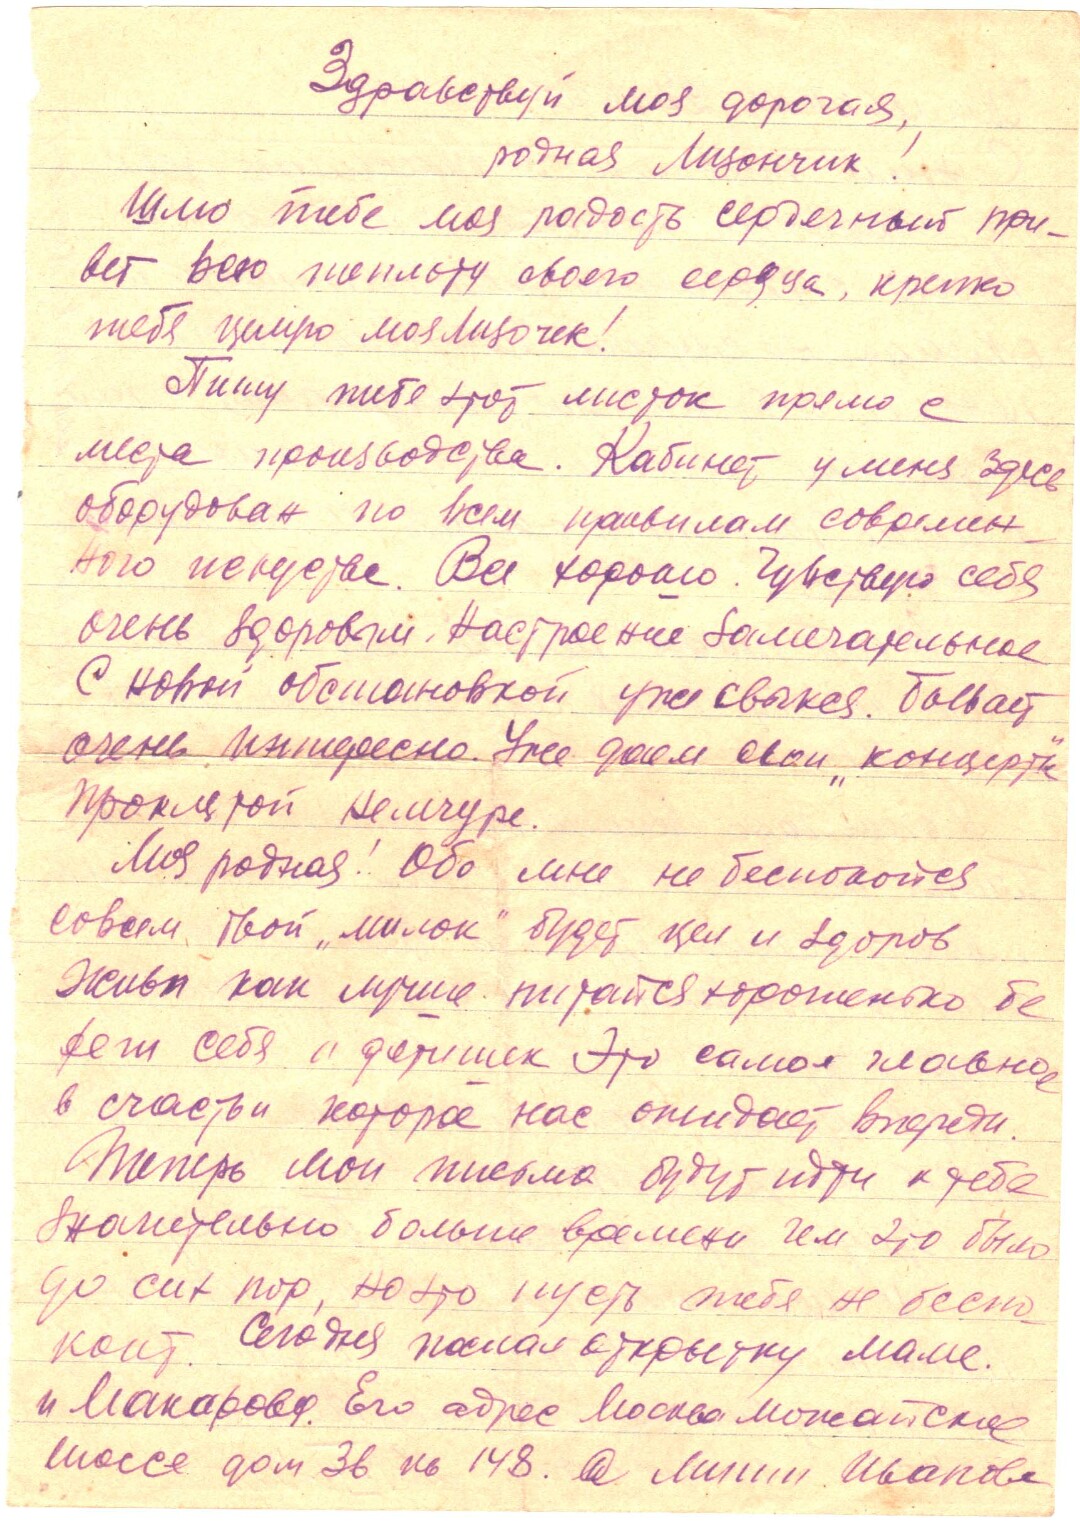 Здравствуй моя дорогая,
родная Лизончик!
Шлю тебе моя радость сердечный при-
вет всю теплоту своего сердца, крепко
тебя целую моя Лизочек!
Пишу тебе этот листок прямо с
места производства. Кабинет у меня здесь
оборудован по всем правилам современ-
ного искуства. Все хорошо. Чувствую себя
очень здоровым. Настроение замечательное
С новой обстановкой уже свыкся. Бывает
очень интересно. Уже даем свои „концерты"
проклятой немчуре.
Моя родная! Обо мне не беспокойся
совсем твой „милок" будет цел и здоров
Живи как лучше питайся хорошенько бе
реги себя и детишек Это самое главное
в счастьи которое нас ожидает впереди.
Теперь мои письма будут идти к тебе
значительно больше времени чем это было
до сих пор, но это пусть тебя не беспо-
коит. Сегодня послал открытку маме.
и Макарову. Его адрес Москва Можайское
шоссе дом 3в кв 148. Линии Иванова